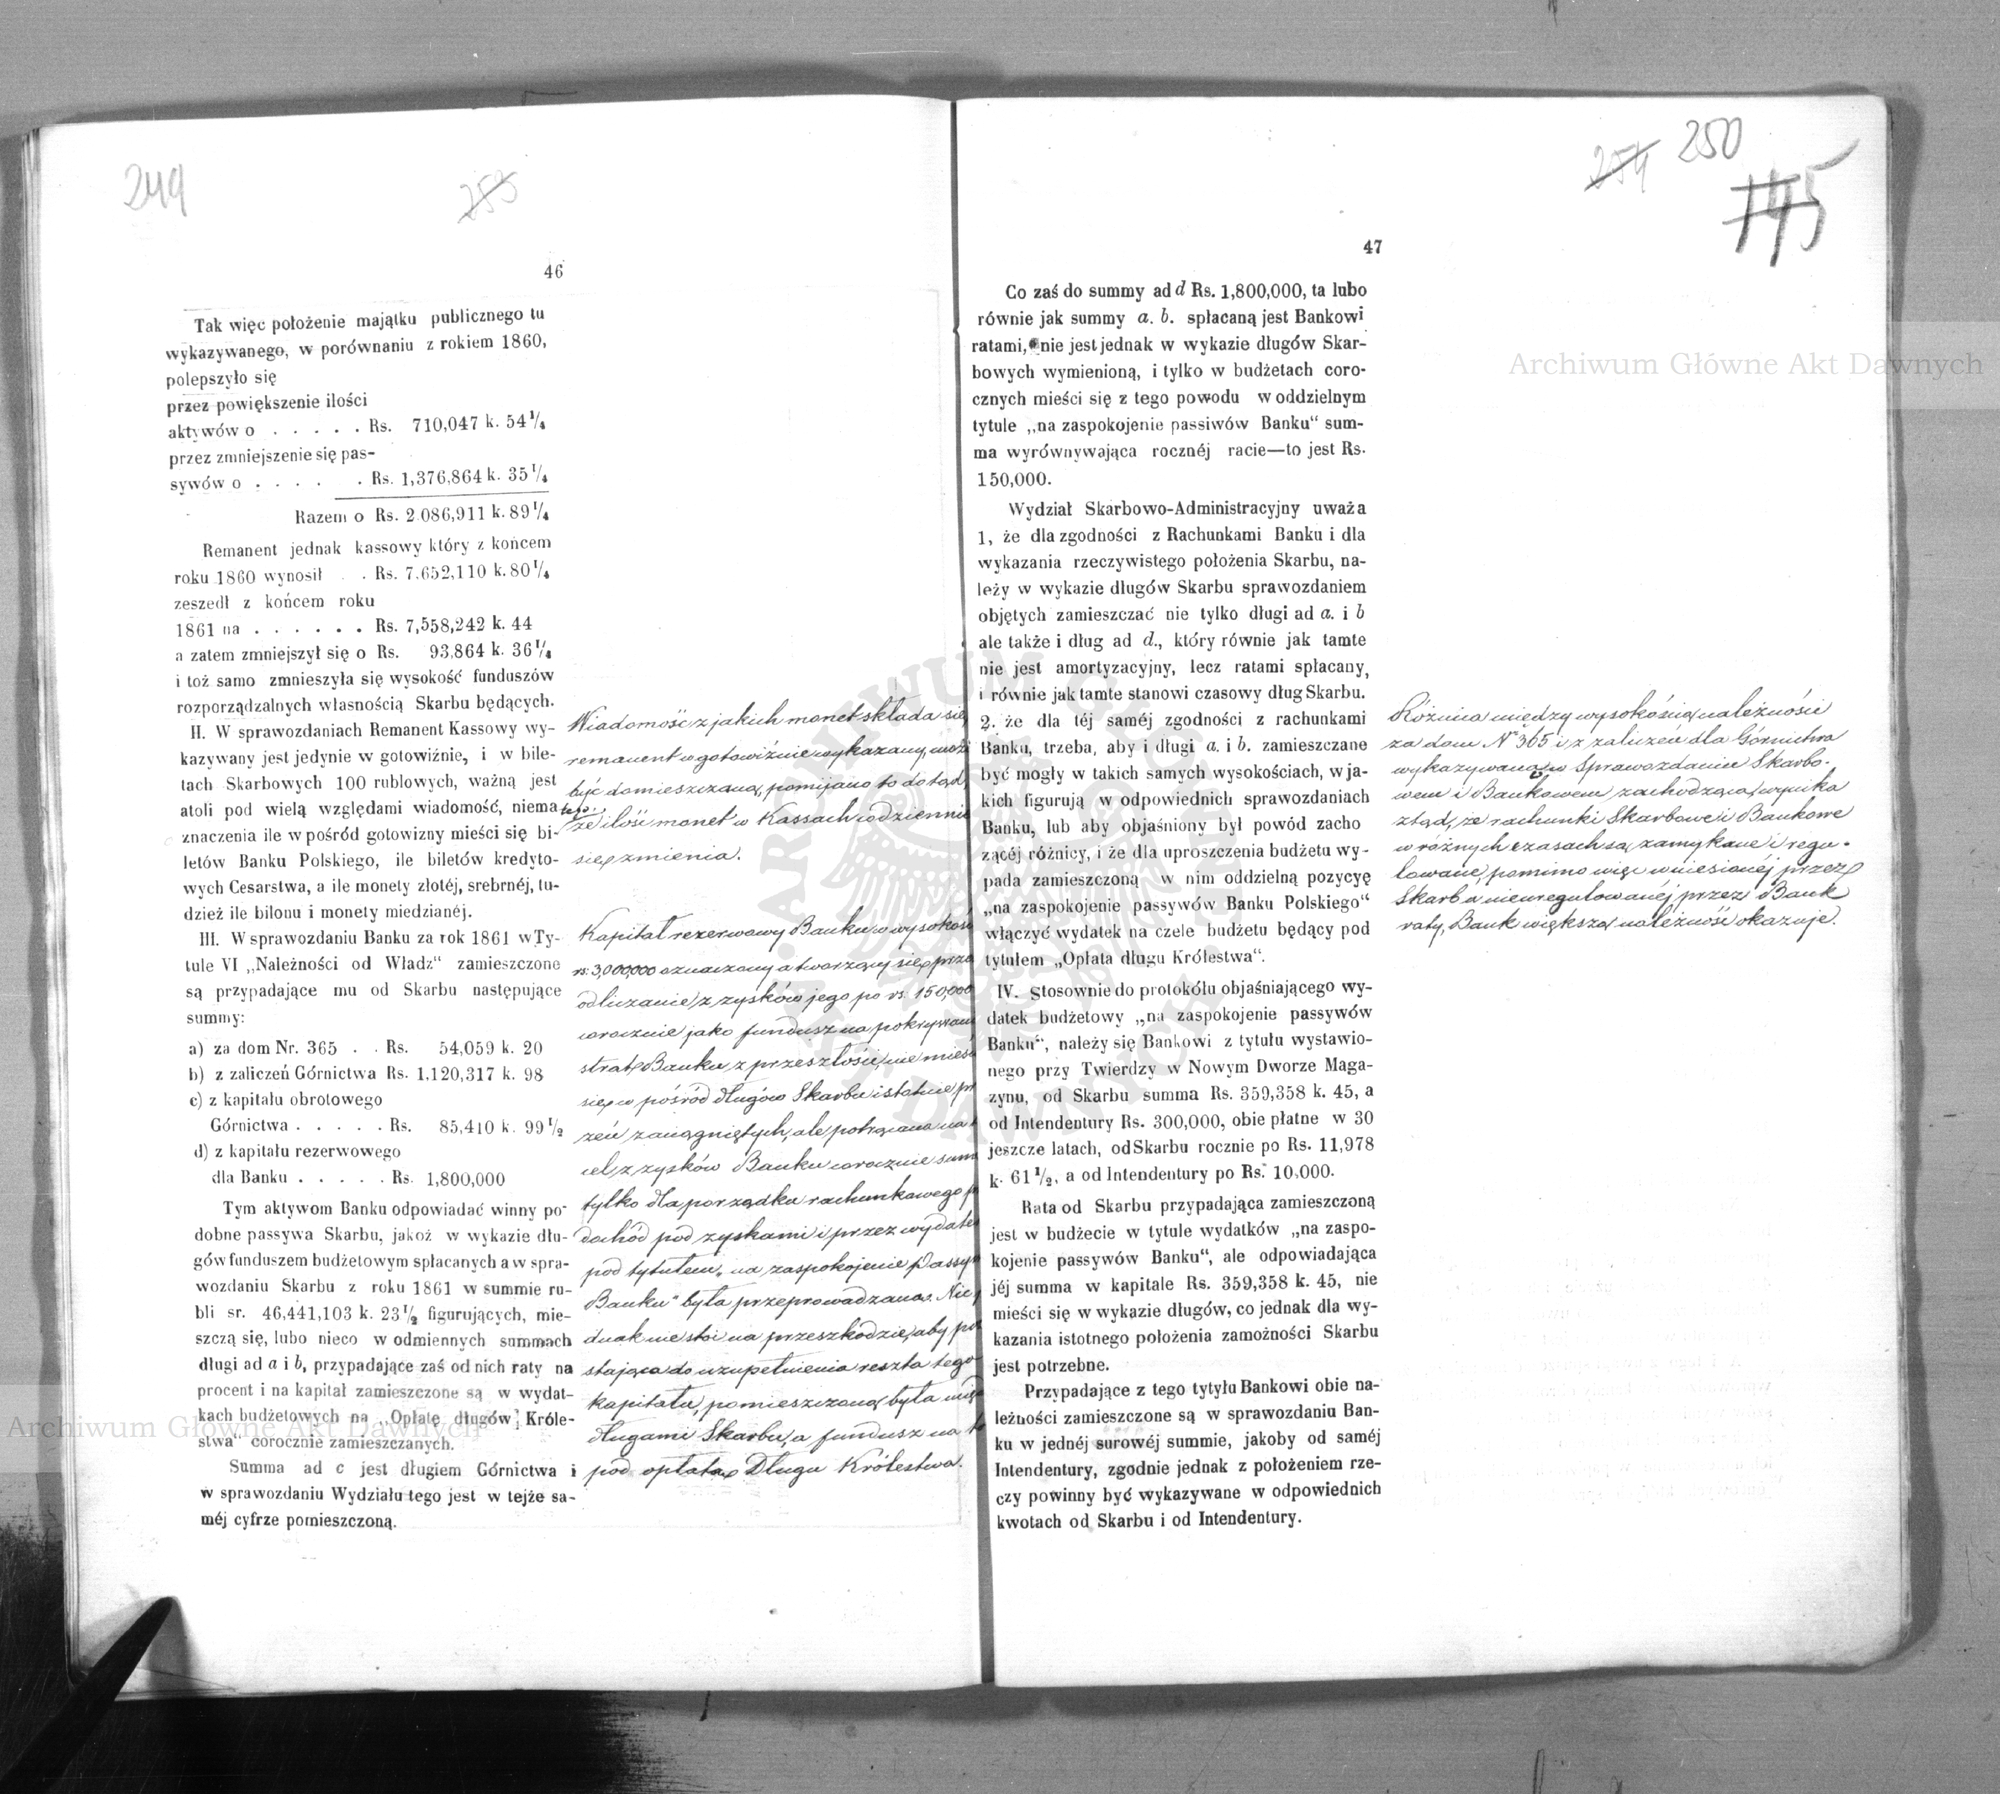 249
253
46
Tak więc położenie majątku publicznego tu
wykazywanego, w porównaniu z rokiem 1860,
polepszyło się
przez powiększenie ilości
aktywów o . . . . . Rs. 710,047 k. 54 1/4
przez zmniejszenie się pas-
sywów o . . . . . Rs. 1,376,864 k. 35 1/4
Razem o Rs. 2.086,911 k. 89 1/4
Remanent jednak kassowy który z końcem
roku 1860 wynosił . . Rs. 7.652,110 k. 80 1/4
zeszedł z końcem roku
1861 na . . . . . . Rs. 7,558,242 k. 44
a zatem zmniejszył się o Rs. 93,864 k. 36 1/4
i toż samo zmnieszyła się wysokość funduszów
rozporządzalnych własnością Skarbu będących.
II. W sprawozdaniach Remanent Kassowy wy-
kazywany jest jedynie w gotowiźnie, i w bile-
tach Skarbowych 100 rublowych, ważną jest
atoli pod wielą względami wiadomość, niema tego
znaczenia ile w pośród gotowizny mieści się bi-
letów Banku Polskiego, ile biletów kredyto-
wych Cesarstwa, a ile monety złotéj, srebrnéj, tu-
dzież ile bilonu i monety miedzianéj.
III. W sprawozdaniu Banku za rok 1861 w Ty-
tule VI „Należności od Władz“ zamieszczone
są przypadające mu od Skarbu następujące
summy:
a) za dom Nr. 365 . . Rs. 54,059 k. 20
b) z zaliczeń Górnictwa Rs. 1,120,317 k. 98
c) z kapitału obrotowego
Górnictwa . . . . . Rs. 85,410 k. 99 1/2
d) z kapitału rezerwowego
dla Banku . . . . . Rs. 1,800,000
Tym aktywom Banku odpowiadać winny po-
dobne passywa Skarbu, jakoż w wykazie dłu-
gów funduszem budżetowym spłacanych a w spra-
wozdaniu Skarbu z roku 1861 w summie ru-
bli sr. 46,441,103 k. 23 1/2 figurujących, mie-
szczą się, lubo nieco w odmiennych summach
długi ad a i b, przypadające zaś od nich raty na
procent i na kapitał zamieszczone są w wydat-
kach budżetowych na „Opłatę długów Króle-
stwa“ corocznie zamieszczanych.
Summa ad c jest długiem Górnictwa i
w sprawozdaniu Wydziału tego jest w tejże sa-
méj cyfrze pomieszczoną.
Wiadomość z jakich monet składa się
remanent w gotowiźnie wykazany, może
być domieszczaną, pomijano to dotąd,
że ilość monet w Kassach codziennie
się zmienia.
Kapitał rezerwowy Banku w wysokości
rs. 3,000,000 oznaczony a tworzący się przez
odliczanie z zysków jego po rs. 150,000
corocznie jako fundusz na pokrywanie
strat Banku z przeszłości, nie mieści
się w pośród długów Skarbu istotnie
zaciągniętych, ale potrącana na
cel z zysków Banku corocznie summa
tylko dla porządku rachunkowego
dochód pod zyskami i przez wydatek
pod tytułem „na zaspokojenie Passywów
Banku“ była przeprowadzana. Nic
dnak nie stoi na przeszkodzie, aby po
stająca do uzupełnienia reszta tego
kapitału, pomieszczoną była
długami Skarbu, a fundusz na
pod opłatą Długu Królestwa.
254
250
745
47
Co zaś do summy ad d Rs. 1,800,000, ta lubo
równie jak summy a. b. spłacaną jest Bankowi
ratami, nie jest jednak w wykazie długów Skar-
bowych wymienioną, i tylko w budżetach coro-
cznych mieści się z tego powodu w oddzielnym
tytule „na zaspokojenie passiwów Banku“ sum-
ma wyrównywająca rocznéj racie—to jest Rs.
150,000.
Wydział Skarbowo-Administracyjny uważa
1, że dla zgodności z Rachunkami Banku i dla
wykazania rzeczywistego położenia Skarbu, na-
leży w wykazie długów Skarbu sprawozdaniem
objętych zamieszczać nie tylko długi ad a. i b
ale także i dług ad d., który równie jak tamte
nie jest amortyzacyjny, lecz ratami spłacany,
i równie jak tamte stanowi czasowy dług Skarbu.
2. że dla téj saméj zgodności z rachunkami
Banku, trzeba, aby i długi a. i b. zamieszczane
być mogły w takich samych wysokościach, w ja-
kich figurują w odpowiednich sprawozdaniach
Banku, lub aby objaśniony był powód zacho
zącéj różnicy, i że dla uproszczenia budżetu wy-
pada zamieszczoną w nim oddzielną pozycyę
„na zaspokojenie passywów Banku Polskiego“
włączyć wydatek na czele budżetu będący pod
tytułem „Opłata długu Królestwa“.
IV. Stosownie do protokółu objaśniającego wy-
datek budżetowy „na zaspokojenie passywów
Banku“, należy się Bankowi z tytułu wystawio-
nego przy Twierdzy w Nowym Dworze Maga-
zynu, od Skarbu summa Rs. 359,358 k. 45, a
od Intendentury Rs. 300,000, obie płatne w 30
jeszcze latach, od Skarbu rocznie po Rs. 11,978
k. 61 1/2, a od Intendentury po Rs. 10,000.
Rata od Skarbu przypadająca zamieszczoną
jest w budżecie w tytule wydatków „na zaspo-
kojenie passywów Banku“, ale odpowiadająca
jéj summa w kapitale Rs. 359,358 k. 45, nie
mieści się w wykazie długów, co jednak dla wy-
kazania istotnego położenia zamożności Skarbu
jest potrzebne.
Przypadające z tego tytyłu Bankowi obie na-
leżności zamieszczone są w sprawozdaniu Ban-
ku w jednéj surowéj summie, jakoby od saméj
Intendentury, zgodnie jednak z położeniem rze-
czy powinny być wykazywane w odpowiednich
kwotach od Skarbu i od Intendentury.
Różnica między wysokością należności
za dom N° 365 i z zaliczeń dla Górnictwa
wykazywaną w Sprawozdaniu Skarbo-
wem i Bankowem zachodząca, wynika
ztąd, że rachunki Skarbowe i Bankowe
w różnych czasach są zamykane i regu-
lowane, pomimo więc wniesionéj przez
Skarb a nieuregulowanéj przez Bank
raty, Bank większą należność okazuje.
Archiwum Główne Akt Dawnych
Archiwum Główne Akt Dawnych
ARCHIWUM GŁÓWNE AKT DAWNYCH